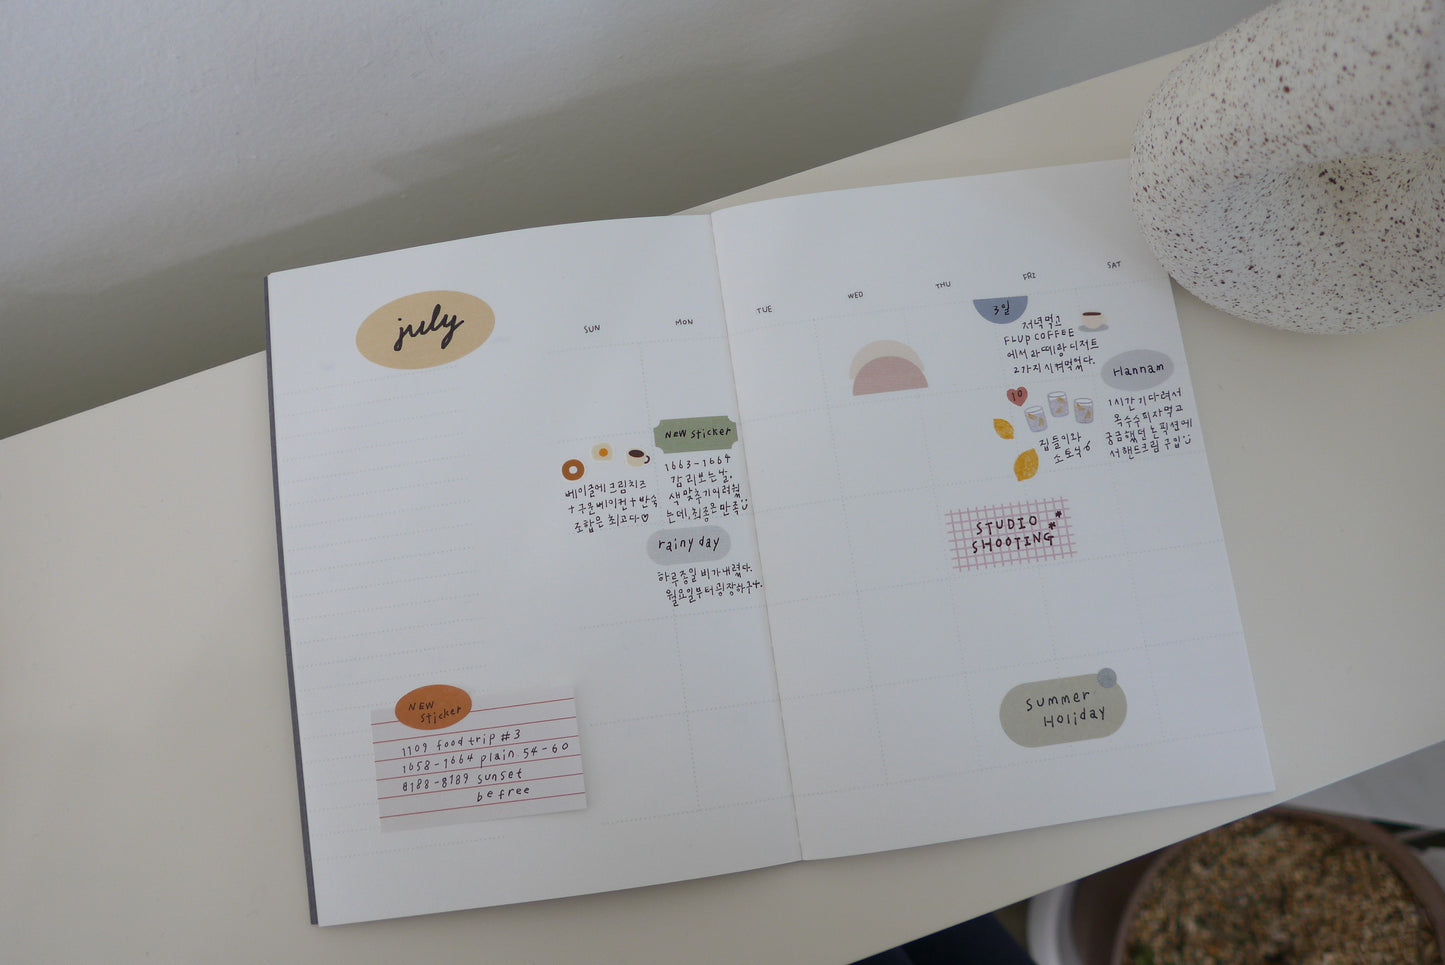 july
SUN
MON
TUE
WED
THU
FRI
SAT
3일
저녁먹고
FLUP COFFEE
에서 라떼랑 디저트
2가지 시켜먹었다.
Hannam
1시간 기다려서
옥수수피자 먹고
궁금했던 논픽션에
서 핸드크림 구입
10
집들이와
소토닉
NEW sticker
1663-1664
감리보는날.
색 맞추기 어려웠
는데, 최종은 만족
베이글에 크림치즈
+구운베이컨+반숙
조합은 최고다♡
rainy day
하루종일 비가 내렸다.
월요일부터 굉장하구나.
STUDIO
SHOOTING
NEW
sticker
1109 food trip #3
1658-1664 plain 54-60
8188-8189 sunset
be free
Summer
Holiday